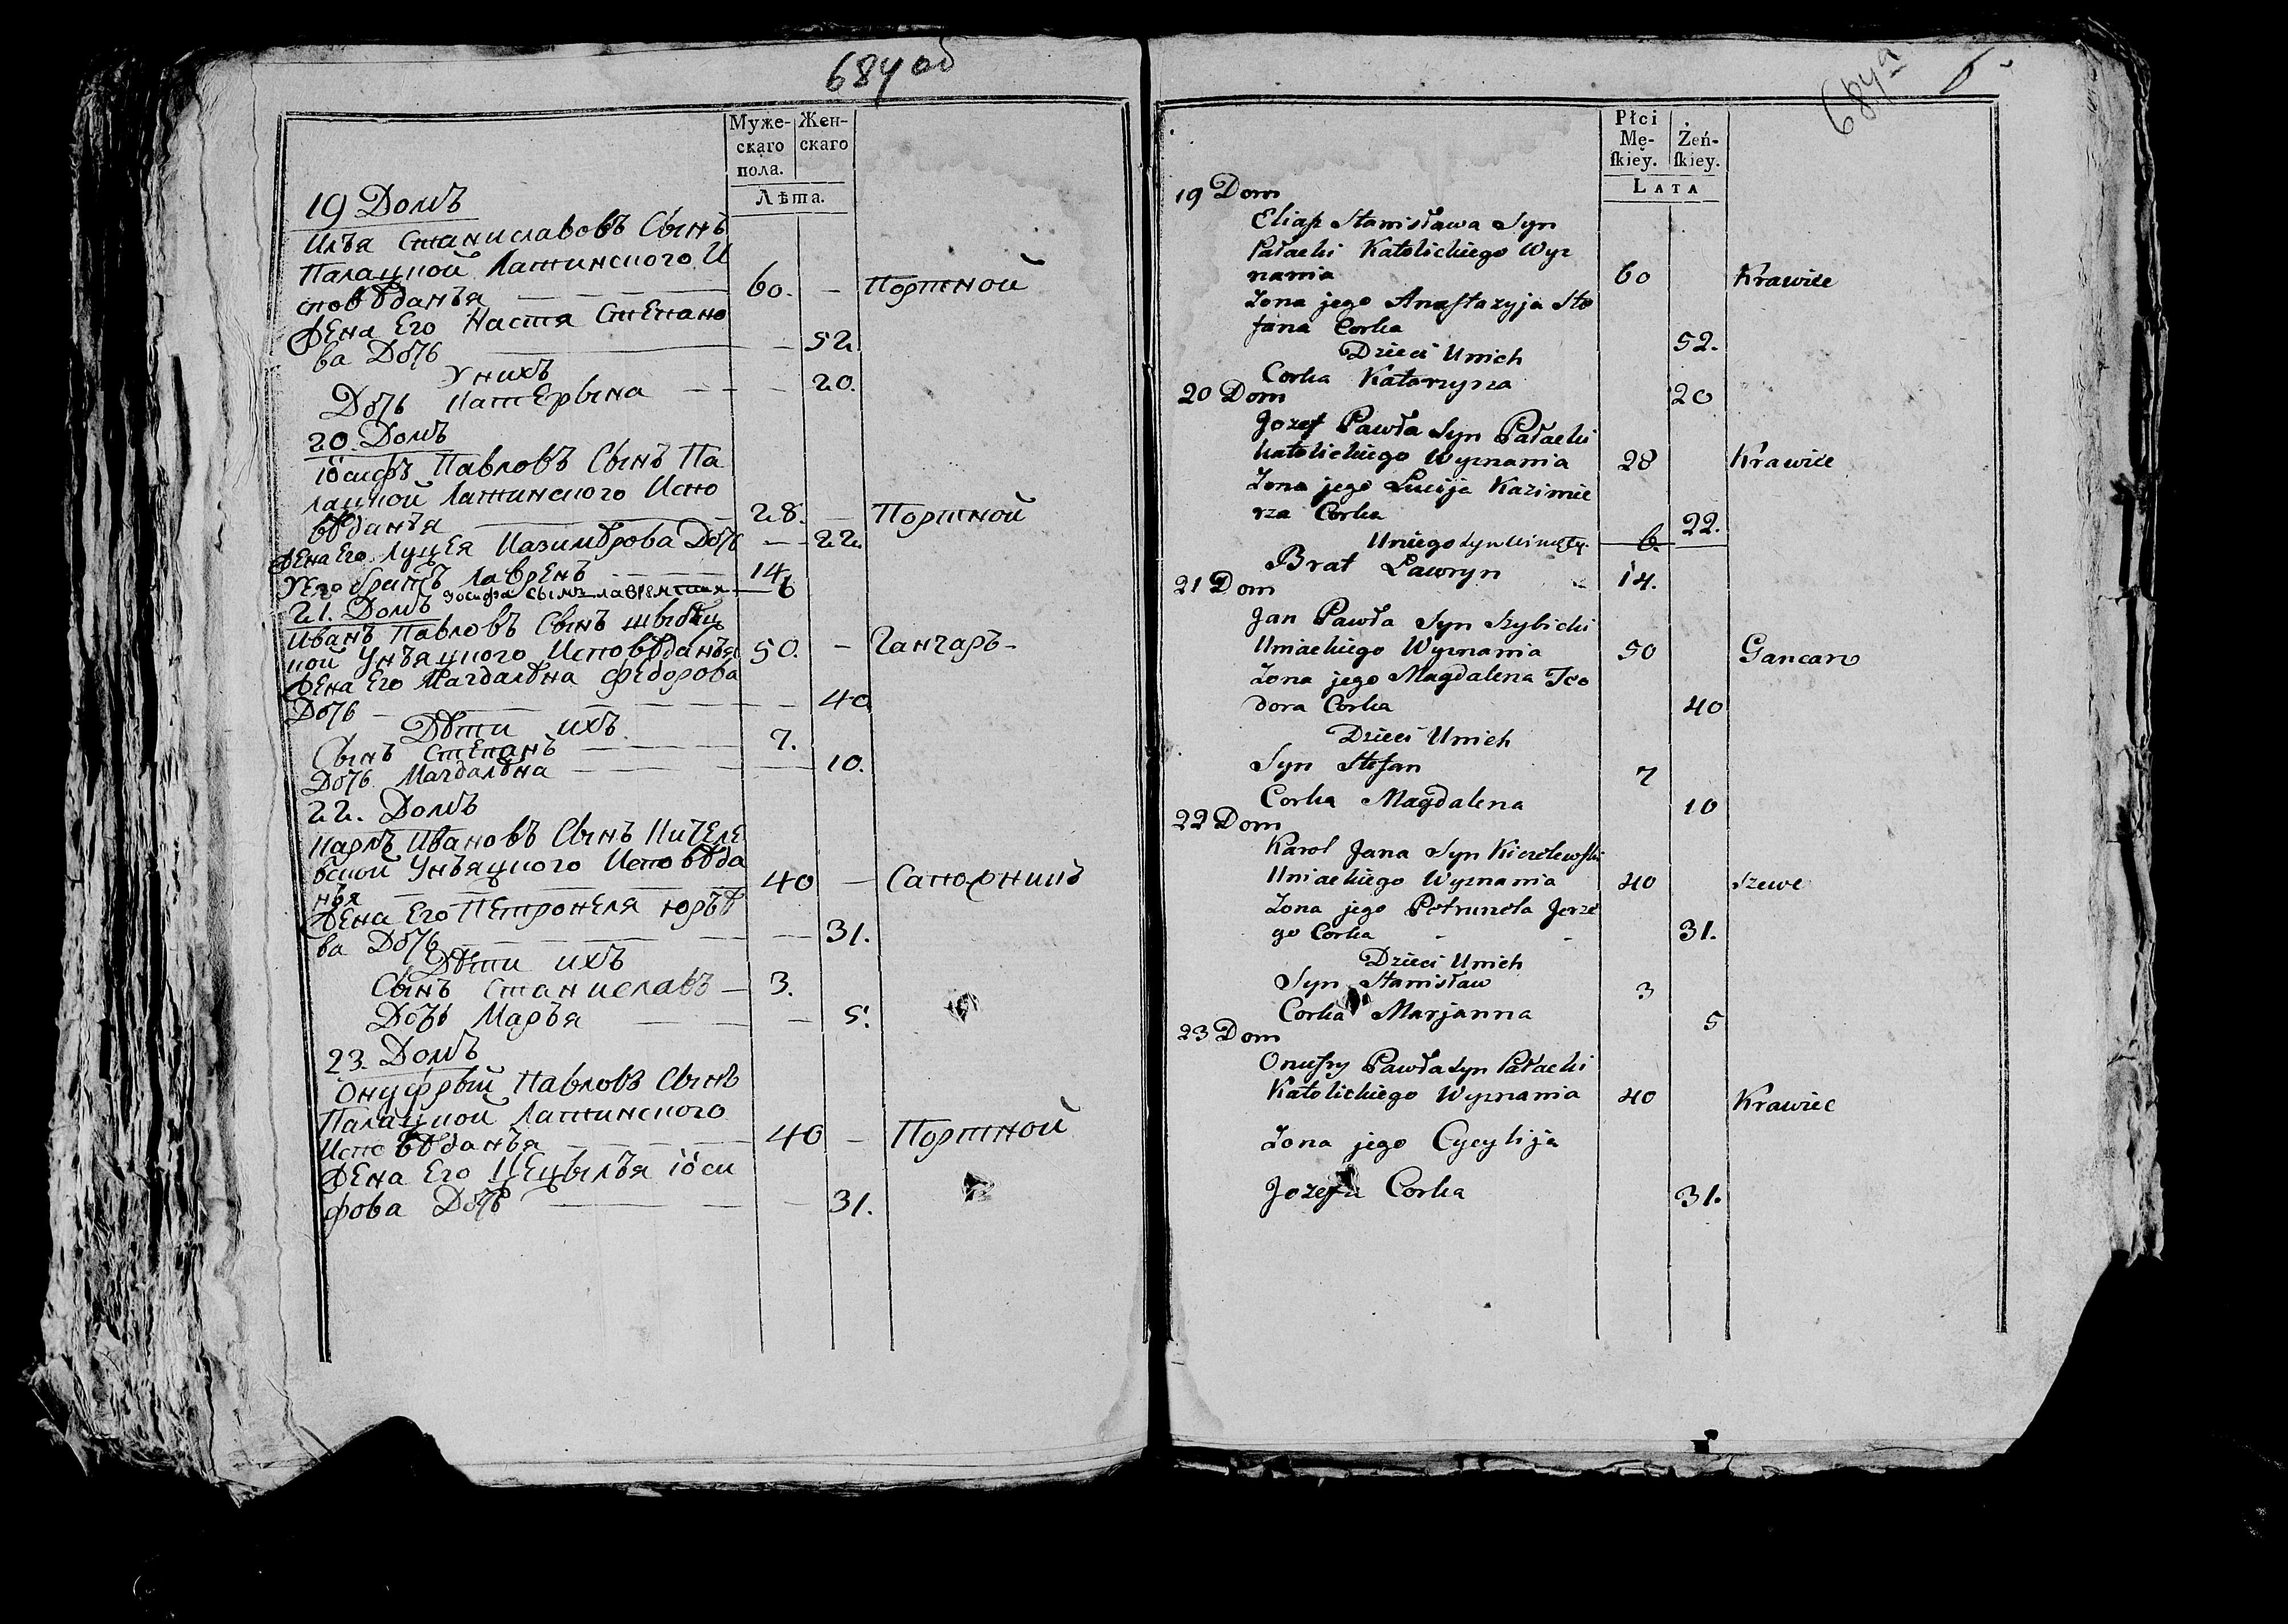 684 об
Муже-
скаго
пола.
Жен-
скаго
Лѣта.
19 Домъ
Илья Станиславовъ Сынъ
Палацкой Латинского И
сповѣданья
60.
Портной
Жена Его Настя Степано
ва Дочь
52
У нихъ
Дочь Катерына
20.
20. Домъ
Іосифъ Павловъ Сынъ Па
лацкой Латинского Испо
вѣданья
28.
Портной
Жена Его Луцея Казимѣрова Дочь
22.
У Его Братъ Лаврѣнъ
14
Іосифа Сынъ
6
21. Домъ
Иванъ Павловъ Сынъ
кой Унѣяцкого Исповѣданья
50.
Ганчаръ
Жена Его Магдалѣна Федорова
Дочь
40
Дѣти ихъ
Сынъ Степанъ
7.
Дочь Магдалѣна
10.
22. Домъ
Карлъ Ивановъ Сынъ Кичеле
вской Унѣяцкого Исповѣда
нья
40
Сапожникъ
Жена Его Петронеля Юрѣе
ва Дочь
31.
Дѣти ихъ
Сынъ Станиславъ
3.
Дочь Марья
5.
23. Домъ
Онуфрый Павловъ Сынъ
Палацкой Латинского
Исповѣданья
40
Портной
Жена Его Цецылья Іоси
фова Дочь
31.
684а
Płci
Mę-
ſkiey.
Żeń-
ſkiey.
Lata
19 Dom
Eliaſz Stanisława Syn
Pałacki Katolickiego Wyz
nania
60
Krawiec
Zona jego Anaſtazyja Ste
fana Corka
52.
Dzieci Unich
Corka Katarzyna
20
20 Dom
Jozef Pawła Syn Pałacki
Katolickiego Wyznania
28
Krawiec
Zona jego Lucija Kazimie
rza Corka
22.
Uniego Syn Wincęty
6.
Brat Lawryn
14.
21 Dom
Jan Pawła Syn Szybicki
Uniackiego Wyznania
50
Gancarz
Zona jego Magdalena Teo
dora Corka
40
Dzieci Unich
Syn Stefan
7
Corka Magdalena
10
22 Dom
Karol Jana Syn Kiczelewſki
Uniackiego Wyznania
40
Szewc
Zona jego Petrunela Jerze
go Corka
31.
Dzieci Unich
Syn Stanisław
3
Corka Marjanna
5
23 Dom
Onufry Pawła Syn Pałacki
Katolickiego Wyznania
40
Krawiec
Zona jego Cycylija
Jozefa Corka
31.